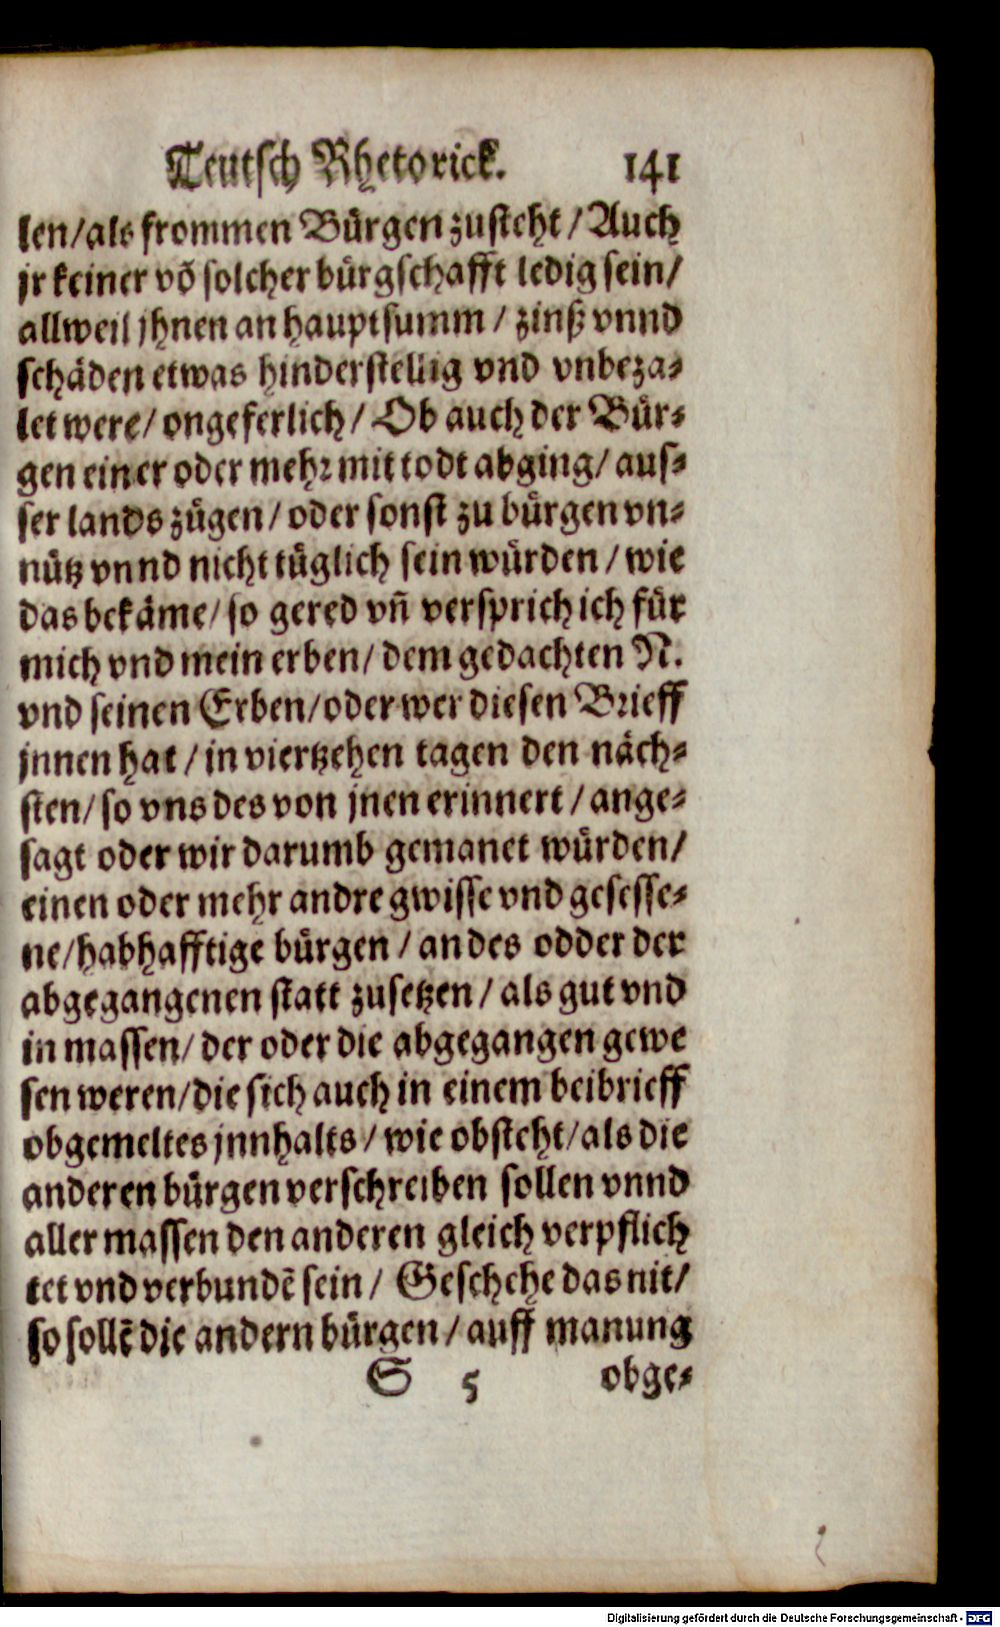 Teutsch Rhetorick. 141
len/als frommen Bürgen zusteht/Auch
jr keiner võ solcher bürgschafft ledig sein/
allweil jhnen an hauptsumm/ zinß vnnd
schäden etwas hinderstellig vnd vnbeza⸗
let were/ongeferlich/ Ob auch der Bür⸗
gen einer oder mehr mit todt abging/aus⸗
ser lands zügen/oder sonst zu bürgen vn⸗
nütz vnnd nicht tüglich sein würden/wie
das bekäme/so gered vñ versprich ich für
mich vnd mein erben/dem gedachten N.
vnd seinen Erben/oder wer diesen Brieff
jnnen hat/in viertzehen tagen den näch⸗
sten/so vns des von jnen erinnert/ange⸗
sagt oder wir darumb gemanet würden/
einen oder mehr andre gwisse vnd gesesse⸗
ne/habhafftige bürgen/an des odder der
abgegangenen statt zusetzen/als gut vnd
in massen/der oder die abgegangen gewe
sen weren/die sich auch in einem beibrieff
obgemeltes jnnhalts/wie obsteht/als die
anderen bürgen verschreiben sollen vnnd
aller massen den anderen gleich verpflich
tet vnd verbundẽ sein/ Geschehe das nit/
so sollẽ die andern bürgen/auff manung
S 5 obge⸗
Digitalisierung gefördert durch die Deutsche Forschungsgemeinschaft - DFG